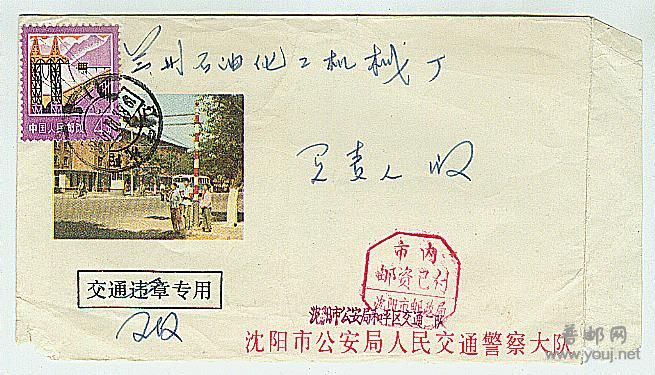 兰州石油化工机械厂
中国人民邮政
负责人 收
市内
邮资已付
沈阳市邮政局
交通违章专用
沈阳市公安局和平区交通一队
沈阳市公安局人民交通警察大队
普邮网
www.youj.net